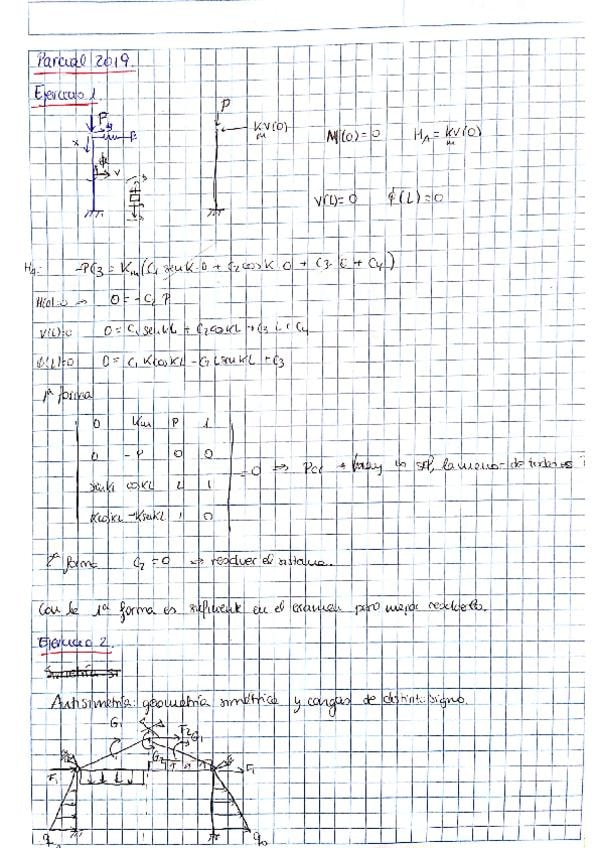 Parcial 2019.
Ejercicio 1.
P
P
x
v
KV(0)
m
M(0)=0 H_A = KV(0)
m
V(L)=0 ϕ(L)=0
H_A: -PC3 = Km(C1 senK·0 + C2 cosK·0 + C3· + C4)
M(0)=0 → 0 = -C2 P
V(L)=0 0 = C1 senKL + C2 cosKL + C3 L + C4
ϕ(L)=0 0 = C1 K cosKL - C2 senKL + C3
1ª forma
0 Km P 1
0 -P 0 0
senKL cosKL L 1
KcosKL -KsenKL 1 0
=0 ⇒ Pcr
2ª forma C2=0 ⇒ resolver el sistema.
Con la 1ª forma es suficiente en el examen pero mejor resolverlo.
Ejercicio 2.
Antisimetría: geometría simétrica y cargas de distinto signo.
G1
F2
G1
G2
F1
F1
q0
q0